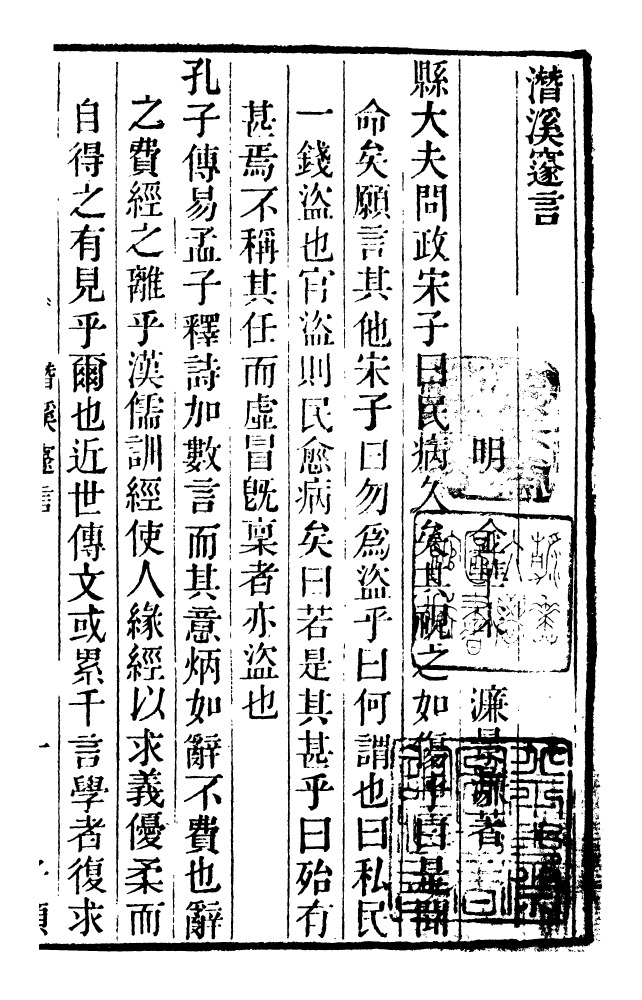 潛溪邃言
明 金華宋 濂景濂著
縣大夫問政宋子曰民病久矣其視之如傷乎曰是聞
命矣願言其他宋子曰勿爲盜乎曰何謂也曰私民
一錢盜也官盜則民愈病矣曰若是其甚乎曰殆有
甚焉不稱其任而虛冒旣稟者亦盜也
孔子傳易孟子釋詩加數言而其意炳如辭不費也辭
之費經之離乎漢儒訓經使人緣經以求義優柔而
自得之有見乎爾也近世傳文或累千言學者復求
潛溪邃言 一